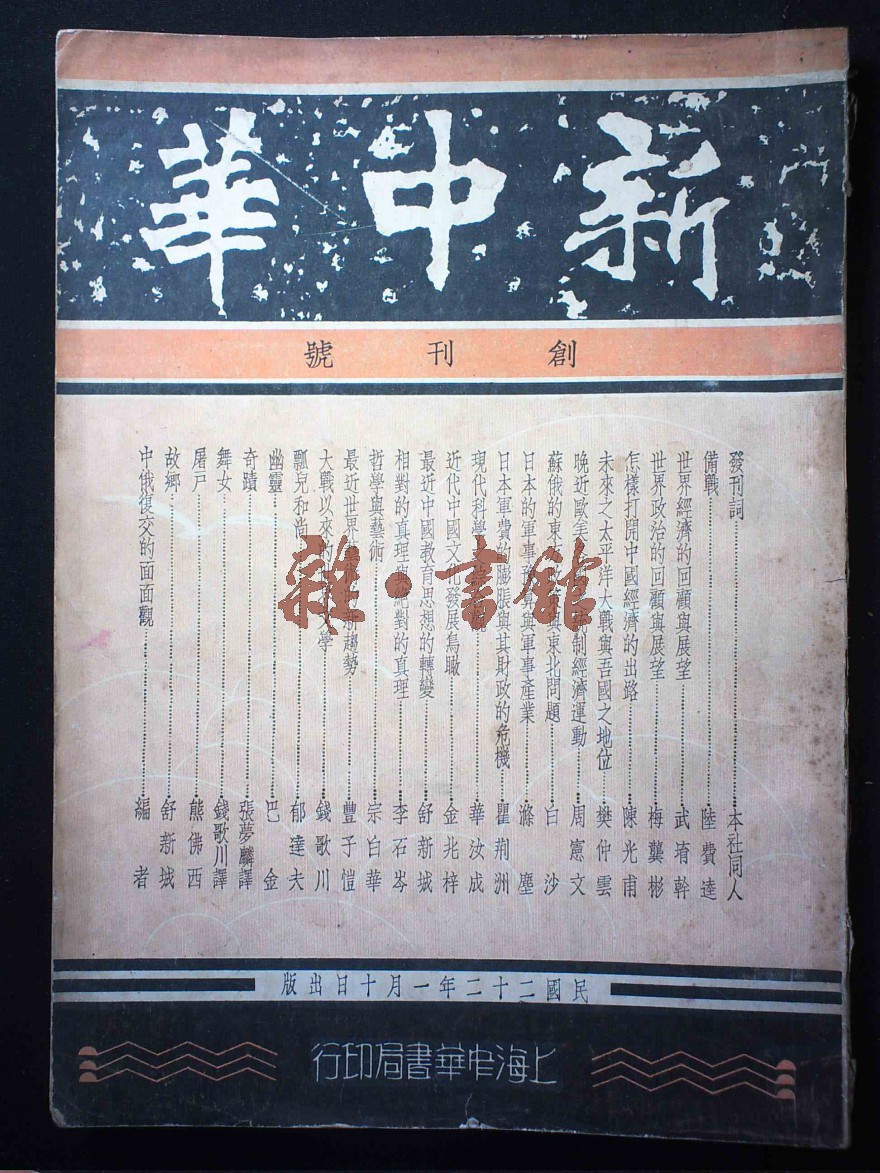 新中華
創刊號
發刊詞……本社同人
備戰……陸費逵
世界經濟的回顧與展望……武堉幹
世界政治的回顧與展望……梅龔彬
怎樣打開中國經濟的出路……陳光甫
未來之太平洋大戰與吾國之地位……樊仲雲
晚近歐美統制經濟運動……周憲文
蘇俄的東與東北問題……白沙
日本的軍事預算與軍事產業……滌塵
日本軍費的膨脹與其財政的危機……瞿荊洲
現代科學……華汝成
近代中國文化發展鳥瞰……金兆梓
最近中國教育思想的轉變……舒新城
相對的真理與絕對的真理……李石岑
哲學與藝術……宗白華
最近世界新趨勢……豐子愷
大戰以來的文學……錢歌川
瓢兒和尚……郁達夫
幽靈……巴金
奇蹟……張夢麟譯
舞女……錢歌川譯
屠戶……熊佛西
故鄉……舒新城
中俄復交的面面觀……編者
雜·書館
民國二十二年一月十日出版
上海中華書局印行